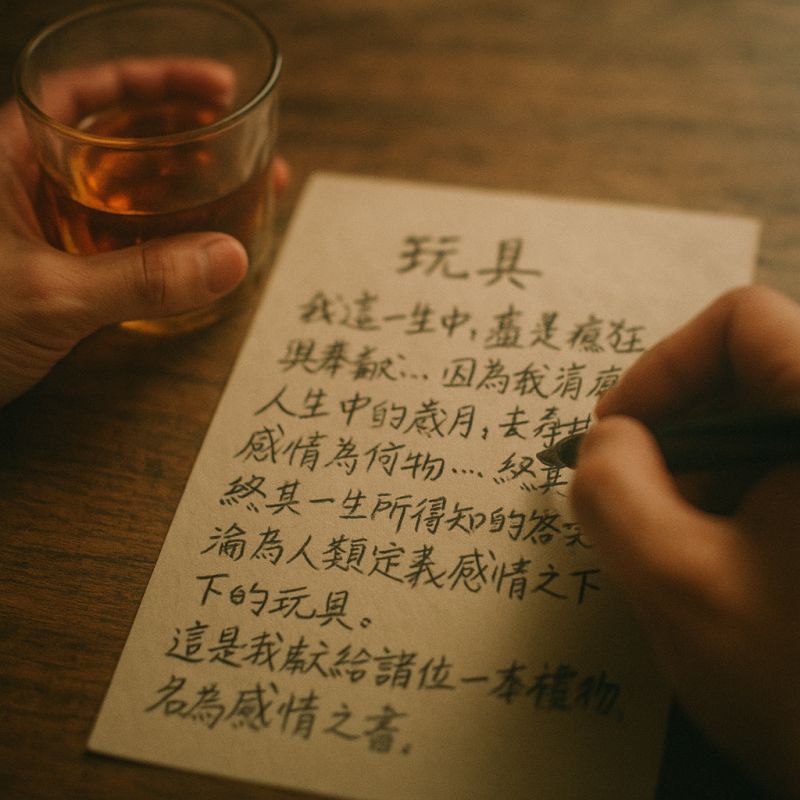 玩具
我這一生中，盡是瘋狂
與奉獻… 因為我消
人生中的歲月，去
感情為何物… 終其
終其一生所得知的答案
淪為人類定義感情之下
下的玩具。
這是我獻給諸位一本禮物，
名為感情之書。